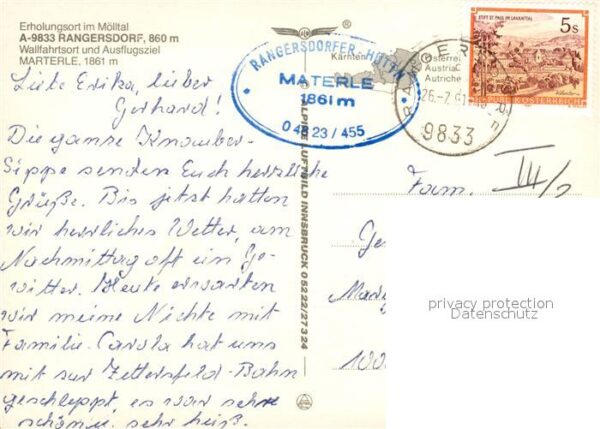 Erholungsort im Mölltal
A-9833 RANGERSDORF, 860 m
Wallfahrtsort und Ausflugsziel
MARTERLE, 1861 m
Liebe Erika, lieber
Gerhard!
Die ganze
Sippe senden Euch herzliche
Grüße. Bis jetzt hatten
wir herrliches Wetter, am
Nachmittag oft ein Ge-
witter. Heute erwarten
wir meine Nichte mit
Familie. Carola hat uns
mit zur Zettersfeld-Bahn
geschleppt, es war sehr
schön u. sehr heiß.
RANGERSDORFER-HÜTTE
MATERLE
1861 m
0 48 23 / 455
ALPINE LUFTBILD INNSBRUCK 05222/27324
Kärnten
Österrei
Austria
Autriche
26.-7.
9833
STIFT ST. PAUL IM LAVANTTAL
5s
REPUBLIK ÖSTERREICH
Fam.
III/2
privacy protection
Datenschutz